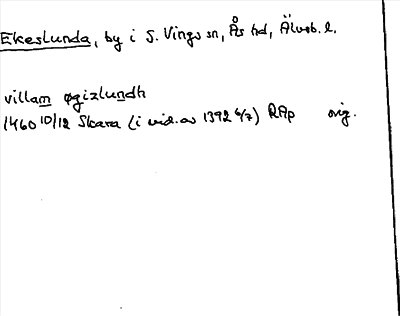 Ekeslunda, by i S. Vings sn, Ås hd, Älvsb. l.
villam øgizlundh
1460 10/12 Skara (i vid. av 1392 6/7) RAp orig.